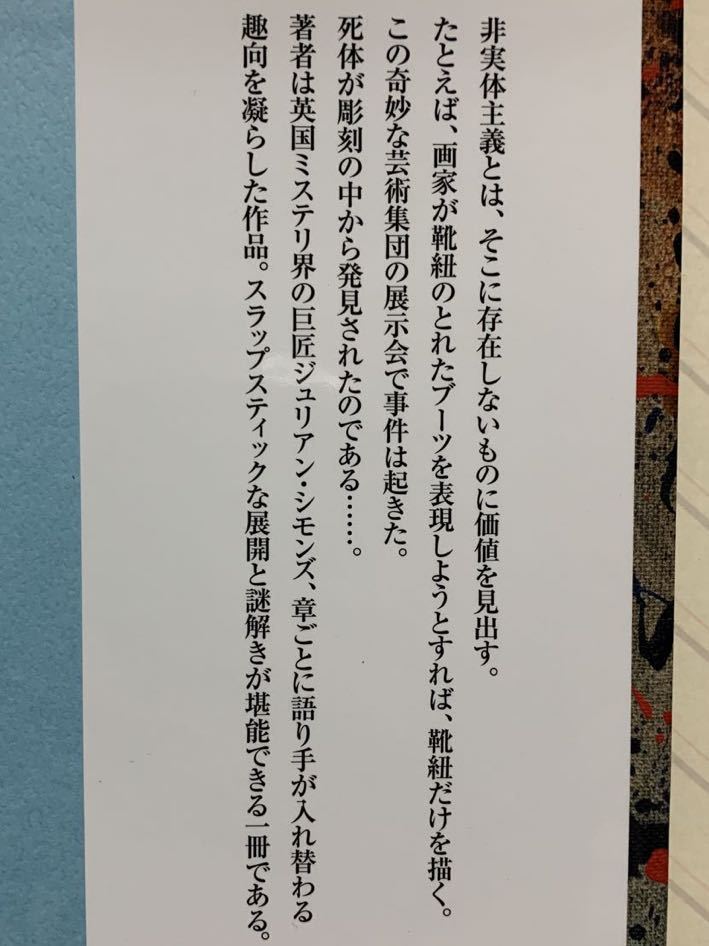 非実体主義とは、そこに存在しないものに価値を見出す。
たとえば、画家が靴紐のとれたブーツを表現しようとすれば、靴紐だけを描く。
この奇妙な芸術集団の展示会で事件は起きた。
死体が彫刻の中から発見されたのである……。
著者は英国ミステリ界の巨匠ジュリアン・シモンズ、章ごとに語り手が入れ替わる
趣向を凝らした作品。スラップスティックな展開と謎解きが堪能できる一冊である。